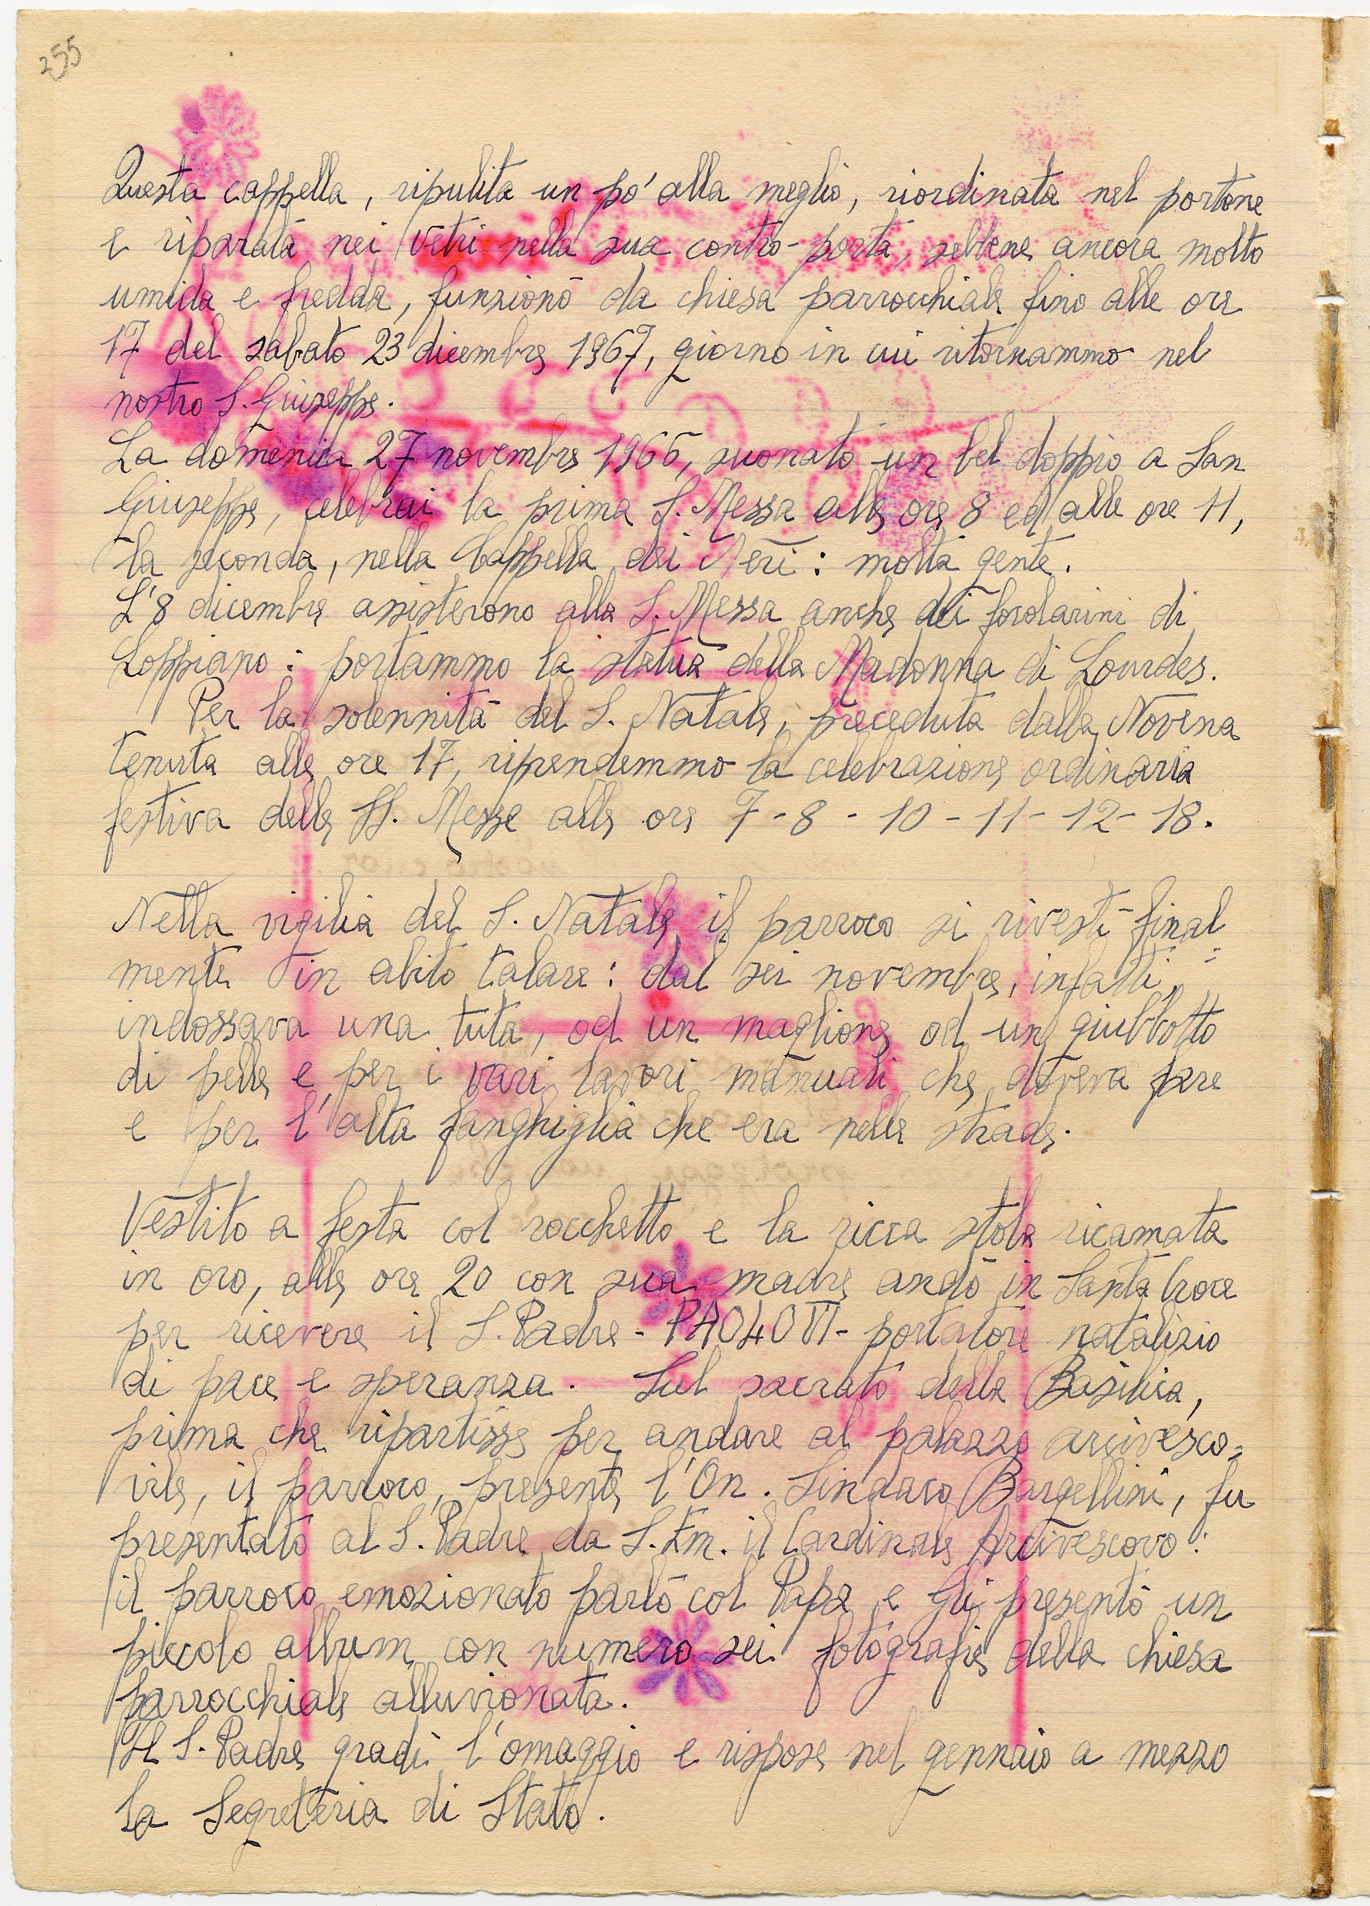 255
Questa cappella, ripulita un pò alla meglio, riordinata nel portone
e riparata nei vetri nella sua contro-porta, sebbene ancora molto
umida e fredda, funzionò da chiesa parrocchiale fino alle ore
17 del sabato 23 dicembre 1967, giorno in cui ritornammo nel
nostro S. Giuseppe.
La domenica 27 novembre 1966, suonato un bel doppio a San
Giuseppe, celebrai la prima S. Messa alle ore 8 ed alle ore 11,
la seconda, nella Cappella dei Neri: molta gente.
L'8 dicembre assisterono alla S. Messa anche dei focolarini di
Loppiano: portammo la statua della Madonna di Lourdes.
Per la solennità del S. Natale, preceduta dalla Novena
tenuta alle ore 17, riprendemmo la celebrazione ordinaria
festiva delle SS. Messe alle ore 7 - 8 - 10 - 11 - 12 - 18.
Nella vigilia del S. Natale il parroco si rivestì final
mente in abito talare: dal sei novembre, infatti,
indossava una tuta, od un maglione od un giubbotto
di pelle e, per i vari lavori manuali che doveva fare
e per l'alta fanghiglia che era nelle strade.
Vestito a festa col rocchetto e la ricca stola ricamata
in oro, alle ore 20 con sua madre andò in Santa Croce
per ricevere il S. Padre - PAOLO VI - portatore natalizio
di pace e speranza. Sul sacrato della Basilica,
prima che ripartisse per andare al palazzo arcivesco=
vile, il parroco, presente l'On. Sindaco Bargellini, fu
presentato al S. Padre da S. Em. il Cardinale Arcivescovo:
il parroco emozionato parlò col Papa e gli presentò un
piccolo album con numero sei fotografie della chiesa
parrocchiale alluvionata.
Il S. Padre gradì l'omaggio e rispose nel gennaio a mezzo
la Segreteria di Stato.